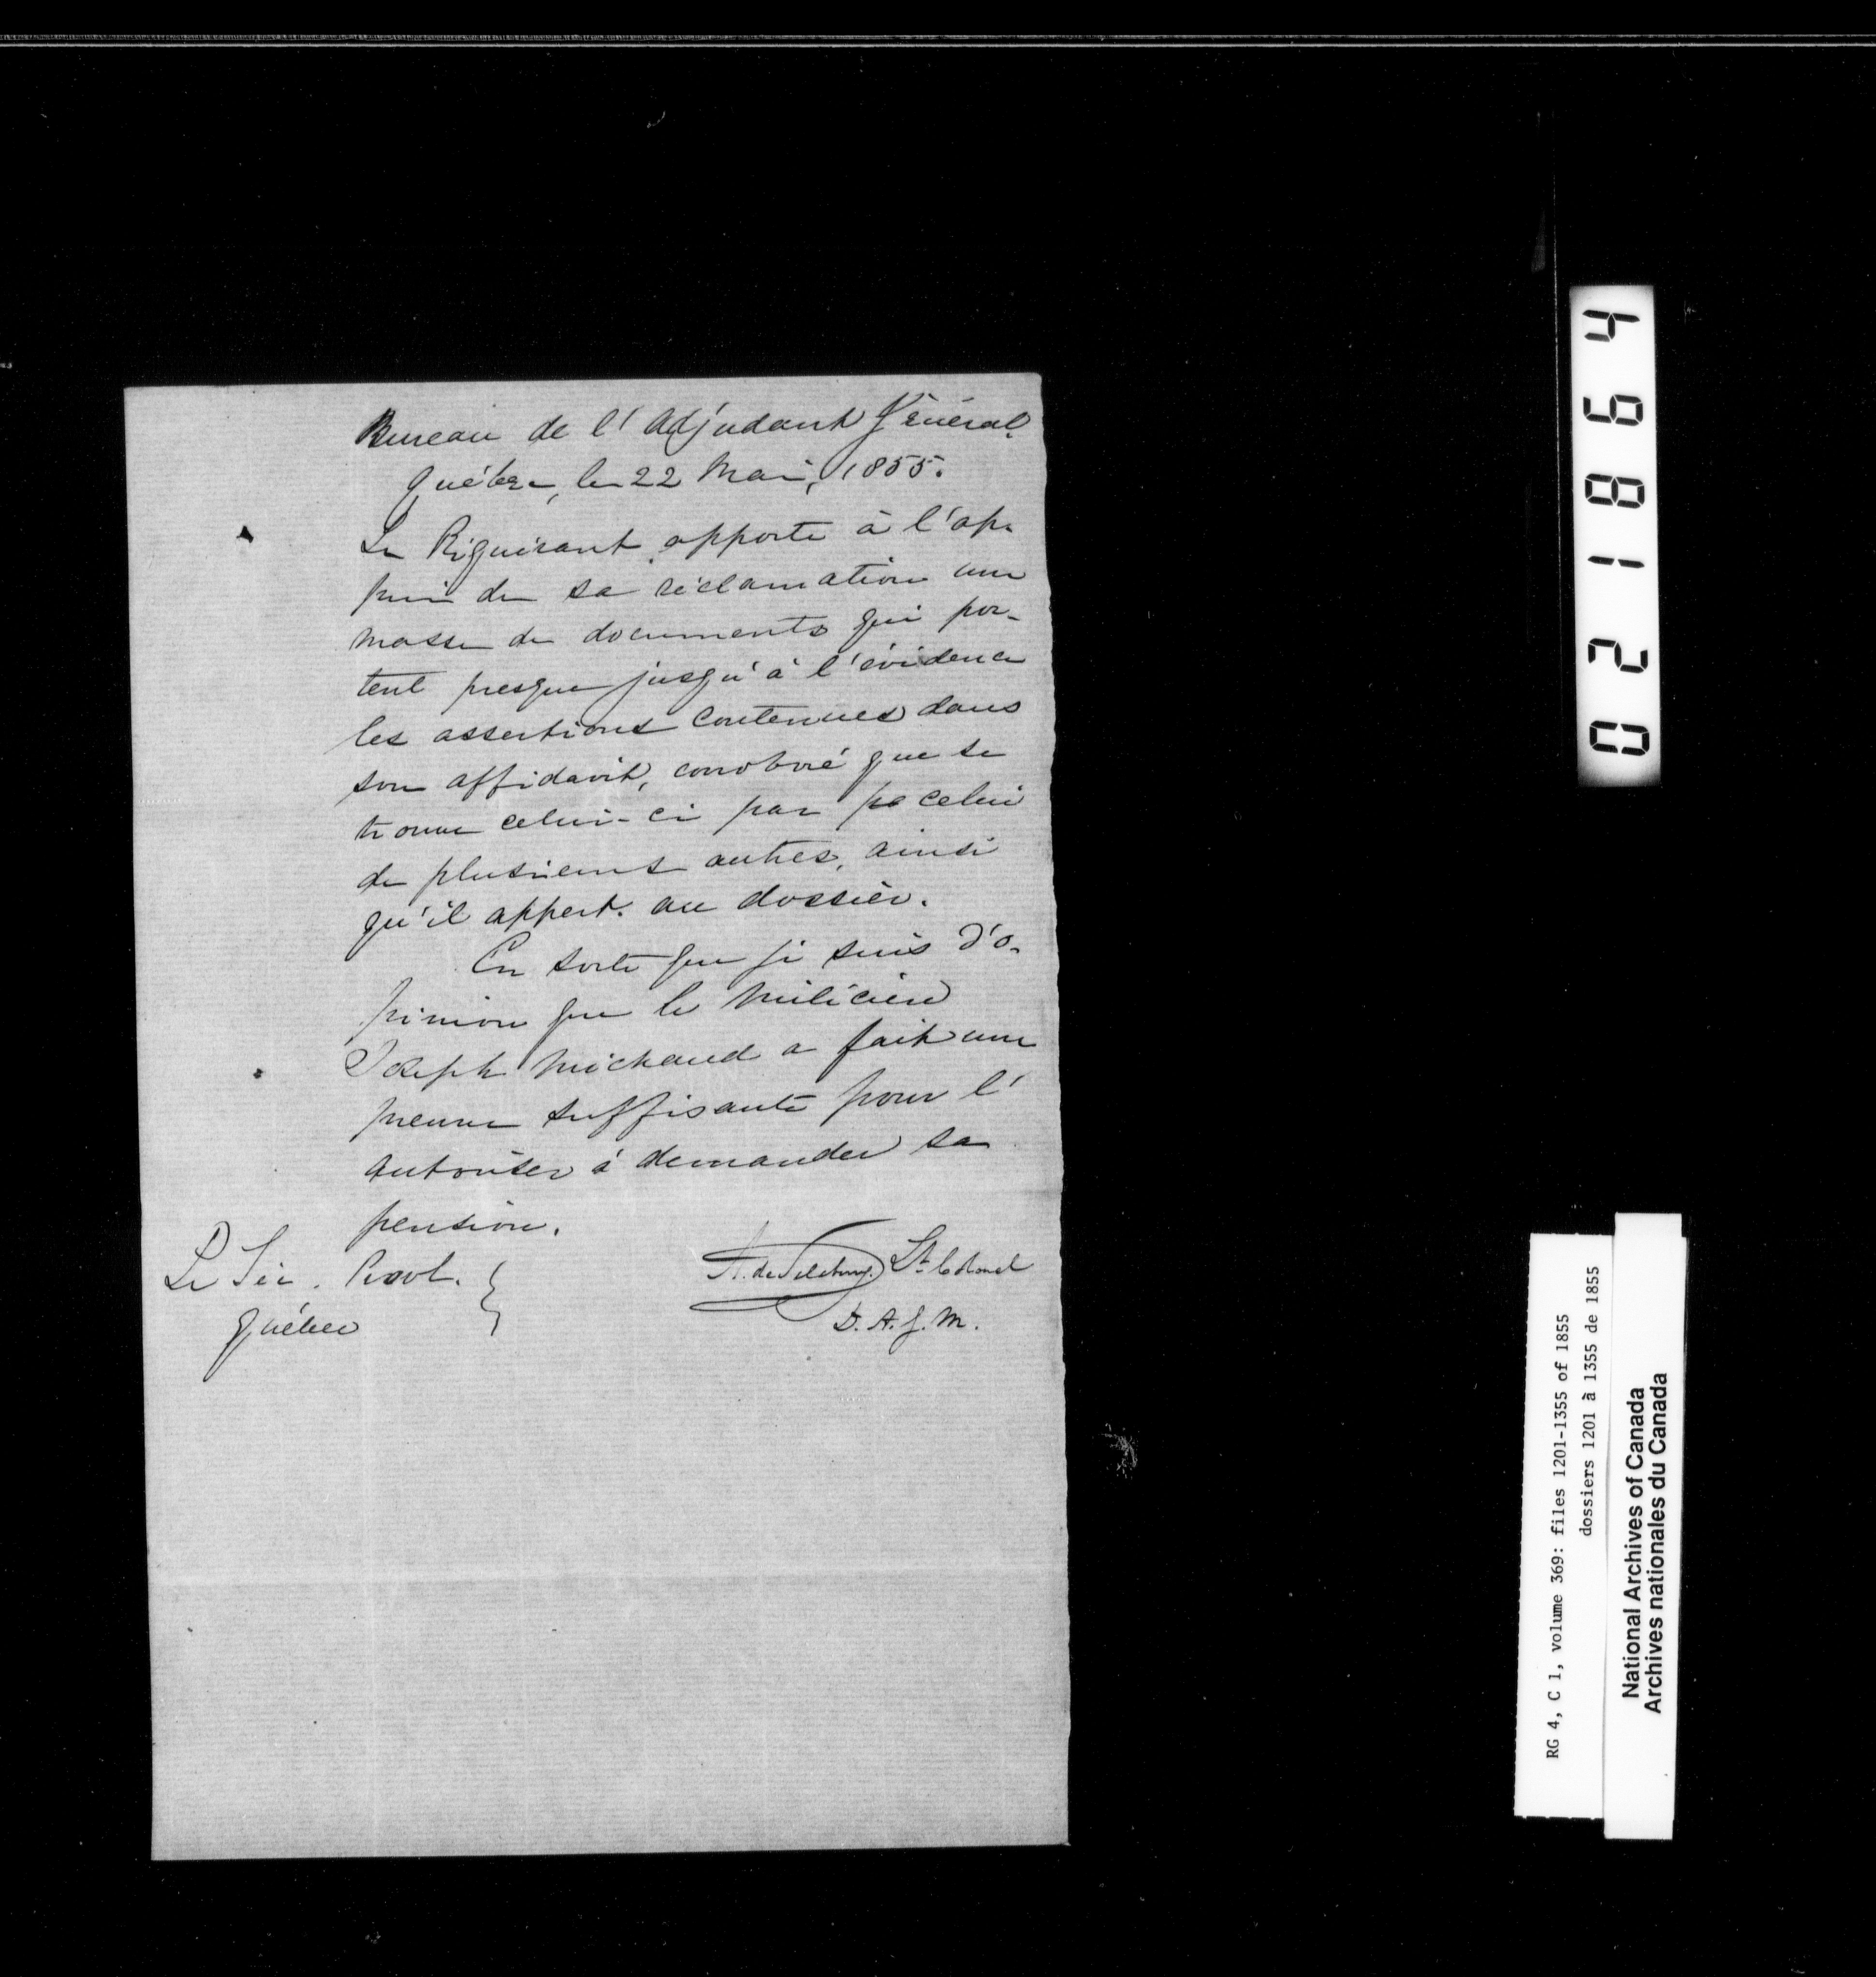 Bureau de l'Adjudant Général
Québec, le 22 Mai, 1855.
Le Réquérant apporte à l'ap-
pui de sa réclamation une
masse de documents qui por-
tent presque jusqu'à l'évidence
les assertions contenues dans
son affidavit, corroboré que se
trouve celui-ci par pa celui
de plusieurs autres, ainsi
qu'il appert. au dossier.
En sorte que je suis d'o-
pinion que le Milicien
Joseph Michaud a fait une
preuve suffisante pour l'
autoriser à demander sa
pension.
Le Séc. Provl.
Québec
A. de Salaberry Lt. Colonel
D. A. G. M.
021864
RG 4, C 1, volume 369: files 1201-1355 of 1855
dossiers 1201 à 1355 de 1855
National Archives of Canada
Archives nationales du Canada